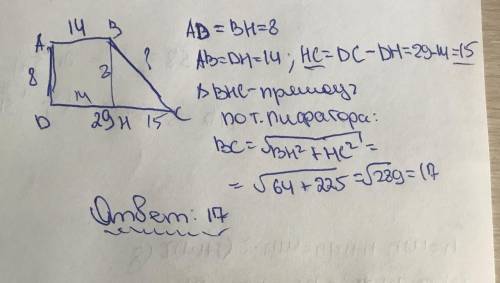 14
A B
8 8 ?
14
D 29 H 15 C
AD = BH = 8
AB = DH = 14 ; HC = DC - DH = 29-14 = 15
Δ BHC - прямоуг
по т. Пифагора:
BC = √BH² + HC² =
= √64 + 225 = √289 = 17
Ответ: 17